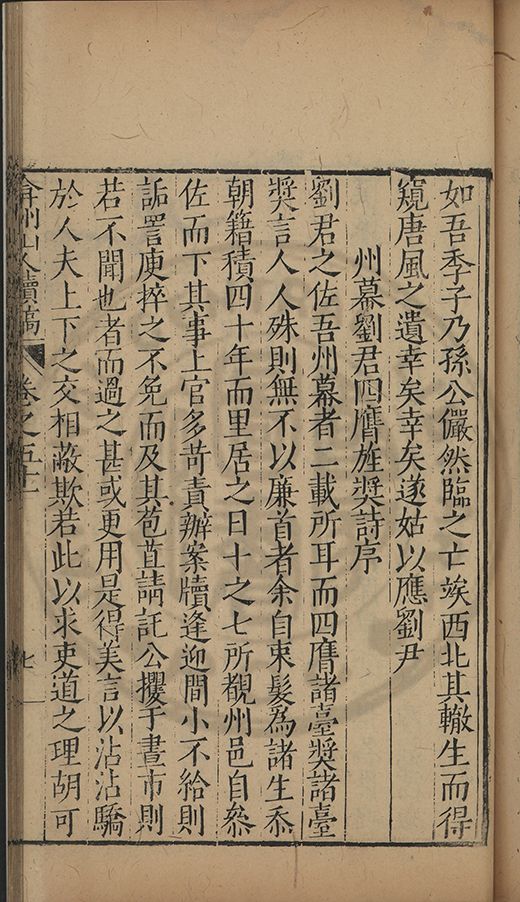 如吾季子乃孫公儼然臨之亡竢西北其轍生而得
窺唐風之遺幸矣幸矣遂姑以應劉尹
州幕劉君四膺旌奬詩序
劉君之佐吾州幕者二載所耳而四膺諸臺奬諸臺
奬言人人殊則無不以廉首者余自束髮爲諸生忝
朝籍積四十年而里居之日十之七所覩州邑自叅
佐而下其事上官多苛責辦案牘逢迎間小不給則
詬詈庾捽之不免而及其苞苴請託公攫于晝市則
若不聞也者而過之甚或更用是得美言以沾沾驕
於人夫上下之交相蔽欺若此以求吏道之理胡可
弇州山人續稿 卷之五十一 七